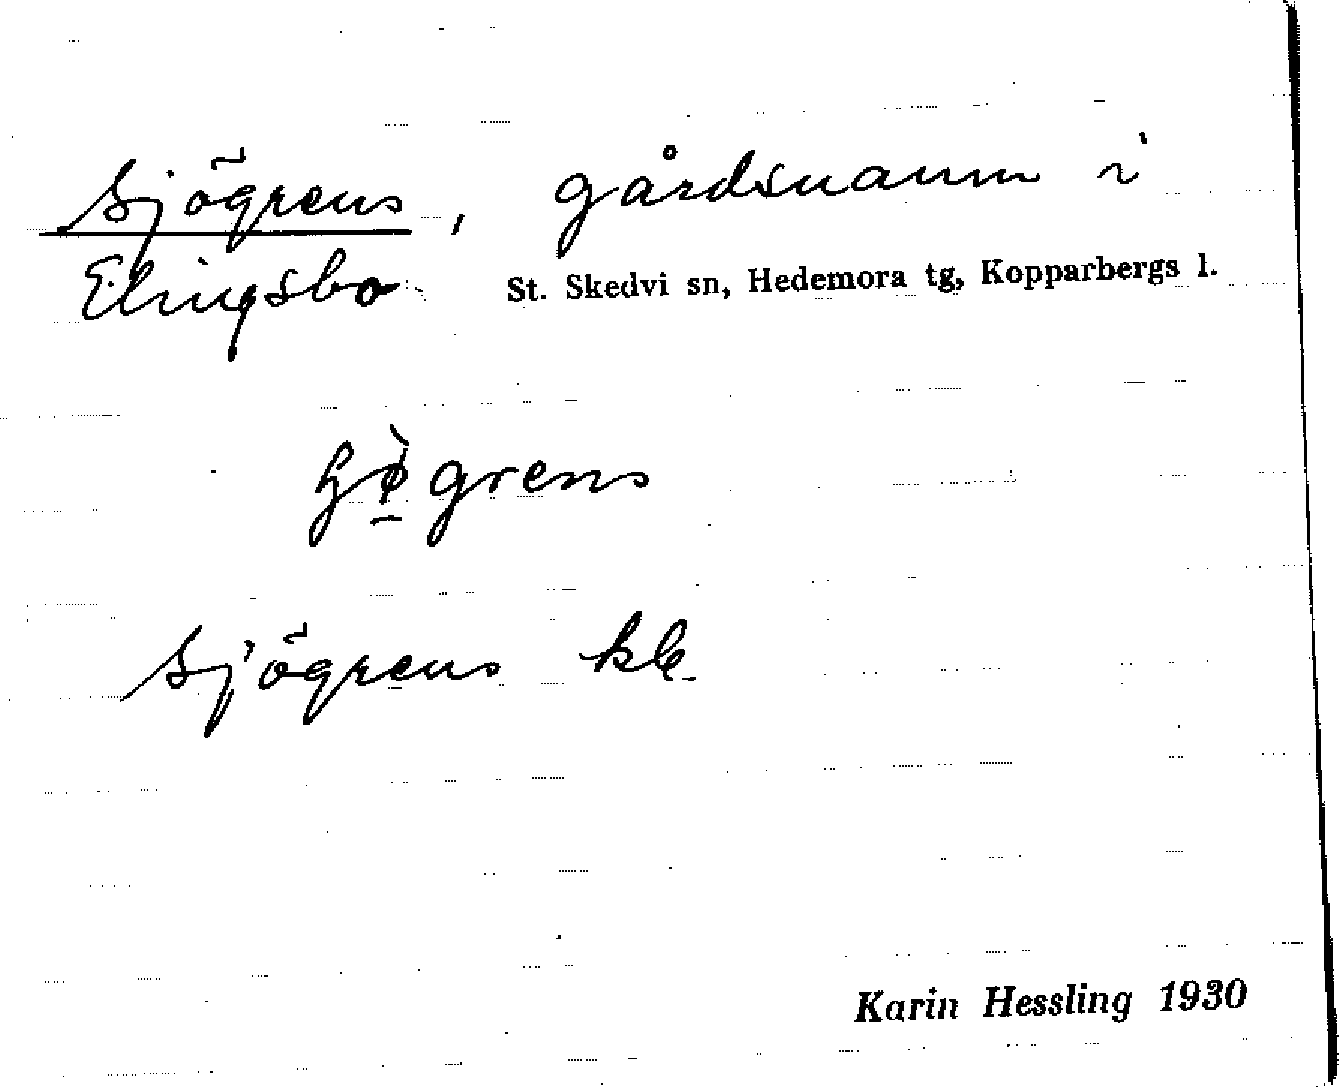 Sjögrens, gårdsnamn i
Elingsbo St. Skedvi sn, Hedemora tg, Kopparbergs l.
Sjögrens kle.
Karin Hessling 1930